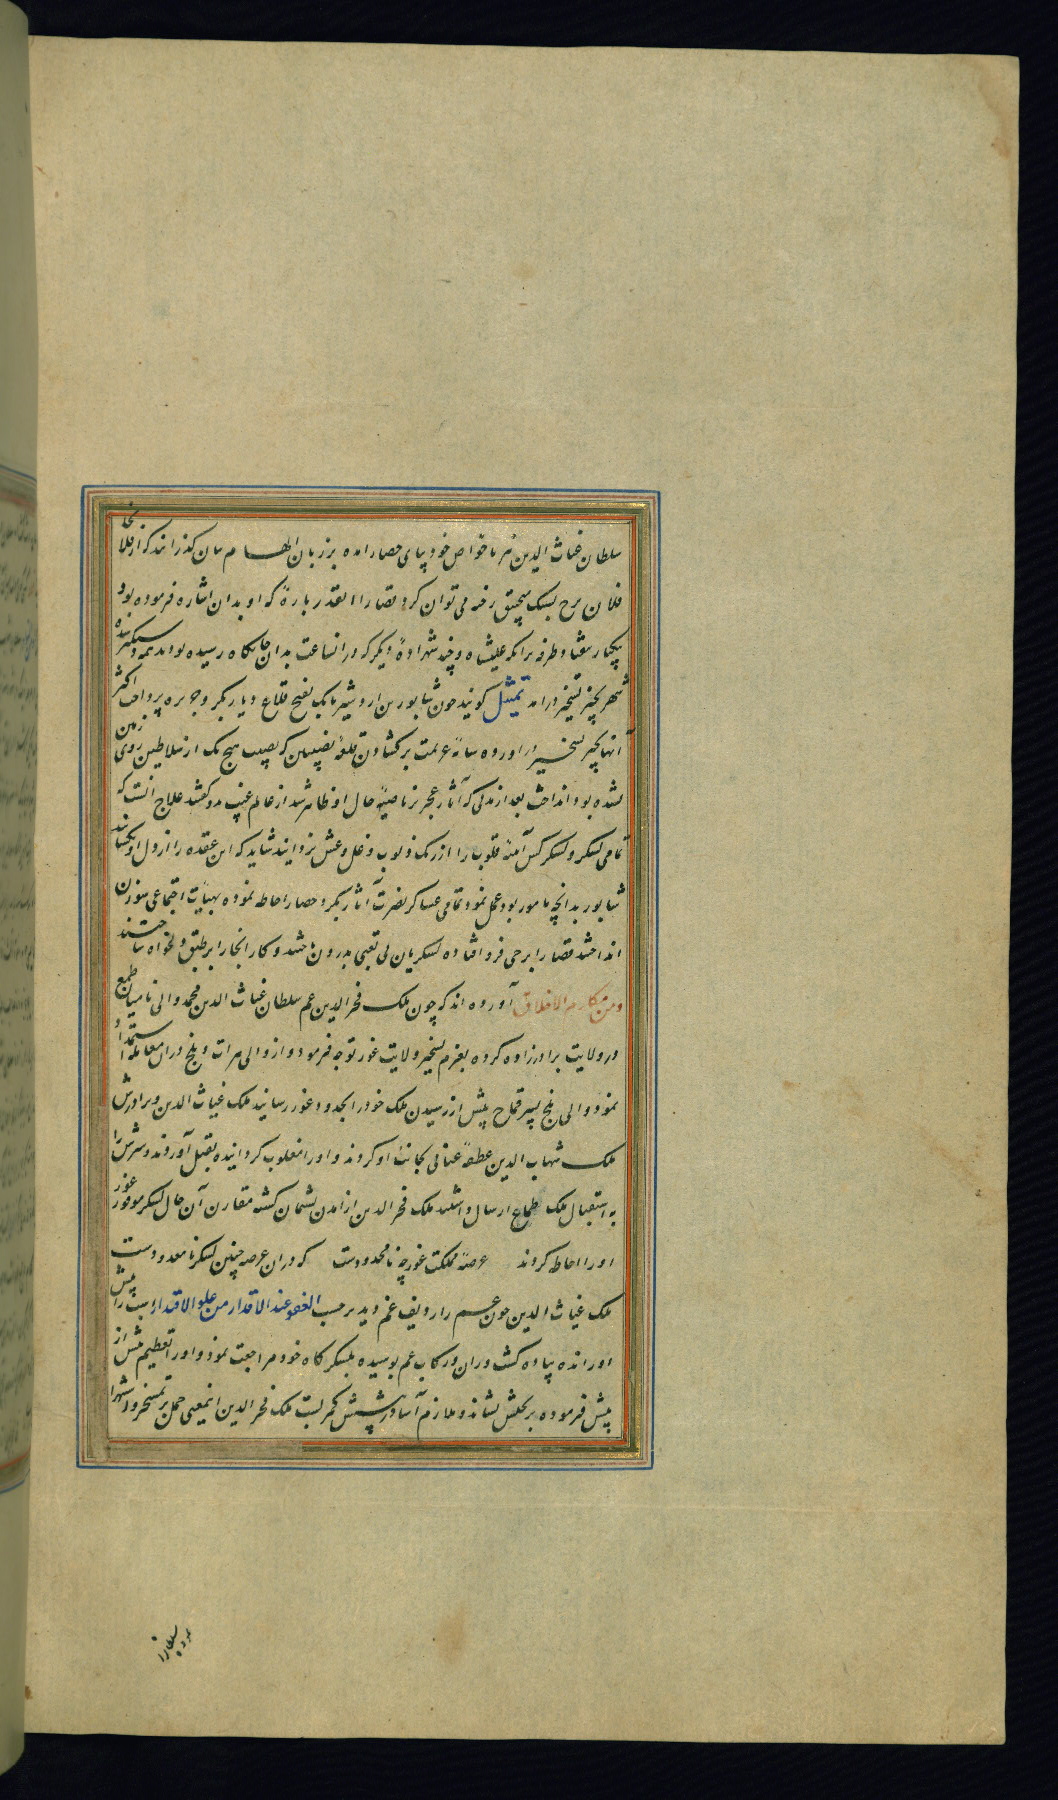 سلطان غیاث الدین نیز با خواص خود بپای حصار آمده بر زبان الهام بیان گذرانید که از فلان جا
فلان برج بسنگ منجنیق رخنه می توان کرد قضا را آنقدر باره که او بدان اشاره فرموده بود
علیشاه و چند شهزاده دیگر که در آن ساعت بدان جایگاه رسیده بودند همه دستگیر شده
شهر بحیز تسخیر درآمد تمثیل گویند چون شاپور بن اردشیر بابک بفتح قلاع دیار بکر و جزیره پرداخت اکثر
آنها بحیز تسخیر در آورده عزیمت بر گشادن قلعه نصیبین که نصیب هیچ یک از سلاطین روی زمین
نشده بود انداخت بعد از مدتی که آثار عجز بر ناصیه حال او ظاهر شد از عالم غیب مدو گفتند علاج آنست که
تمامی لشکر و لشکرکش آینه قلوب را از زنک ذنوب و غل و غش بزدایند شاید که این عقده را از دل او بگشایند
شاپور بدانچه مامور بود عمل نمود و تمامی عساکر نصرت آثار بگرد حصار احاطه نموده بهیأت اجتماعی سورن
انداختند قضا را برجی فرو افتاده لشکریان بی تعبی بدرون تاختند و کار آنجا را بر طبق دلخواه ساختند
و من مکارم الاخلاق آورده اند که چون ملک فخر الدین عم سلطان غیاث الدین محمد والی بامیان طمع
در ولایت برادرزاده کرده بعزم تسخیر ولایت غور توجه فرمود و از والی هرات و بلخ در آن معامله استمداد
نمود و والی بلخ بسیر قماج پیش از رسیدن ملک خود را بحدود غور رسانید ملک غیاث الدین و برادرش
ملک شهاب الدین عطفه عنانی بجانب او کردند و او را مغلوب گردانیده بقتل آوردند و سرش را
به استقبال ملک طماع ارسال داشتند ملک فخر الدین از آمدن پشیمان گشته مقارن آن حال لشکر موفور غور
او را احاطه کردند عرصه مملکت غور چه نامحدودست که در آن عرصه چنین لشکر نامعدودست
ملک غیاث الدین چون عم را ردیف غم دید بر حسب العفو عند الاقتدار من علو الاقدار اسب را پیش
او رانده پیاده گشت و ران و رکاب عم بوسیده بلشکرگاه خود مراجعت نمود و او را تعظیم بیش از
پیش فرموده بر تختش نشاند و ملازم آسا در پیشش کمر بست ملک فخر الدین اینمعنی حمل بر تمسخر و استهزا